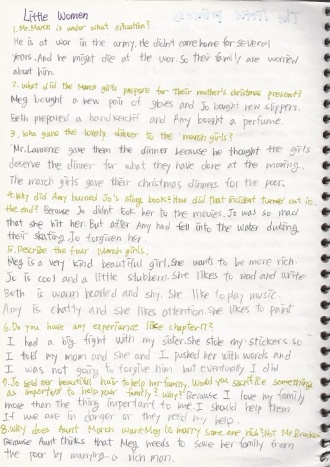 Little Women
1. Mr. March is under what situation?
He is at war in the army. He didn't come home for several
years. And he might die at the war. So their family are worried
about him.
2. What did the March girls prepare for their mother's christmas present?
Meg bought a new pair of gloves and Jo bought new slippers.
Beth prepared a handkechif and Amy bought a perfume.
3. Who gave the lovely dinner to the march girls?
Mr. Laurence gave them the dinner because he thought the girls
deserve the dinner for what they have done at the morning.
The march girls gave their christmas dinners for the poor.
4. Why did Amy burned Jo's story book? How did that incident turned out in
the end? Because Jo didn't took her to the movies. Jo was so mad
that she hit her. But after Amy had fell into the water during
their skating. Jo forgiven her.
5. Describe the four March girls.
Meg is a very kind beautiful girl. She wants to be more rich.
Jo is cool and a little stubbern. She likes to read and write
Beth is warm hearted and shy. She like to play music.
Amy is chatty and she likes attention. She likes to paint
6. Do you have any experiance like chapter 17?
I had a big fight with my sister. She stole my stickers so
I told my mom and she and I pushed her with words and
I was not going to forgive him but eventually I did
7. Jo sold her beautiful hair to help her family. Would you sacrifice something
as important to help your family? Why? Because I love my family
more than the thing important to me. I should help them
If we are in danger or they need my help.
8. Why does Aunt March want Meg to marry some one rich? Not Mr. Brooke
Because Aunt thinks that Meg needs to save her family from
the poor by marrying a rich man.